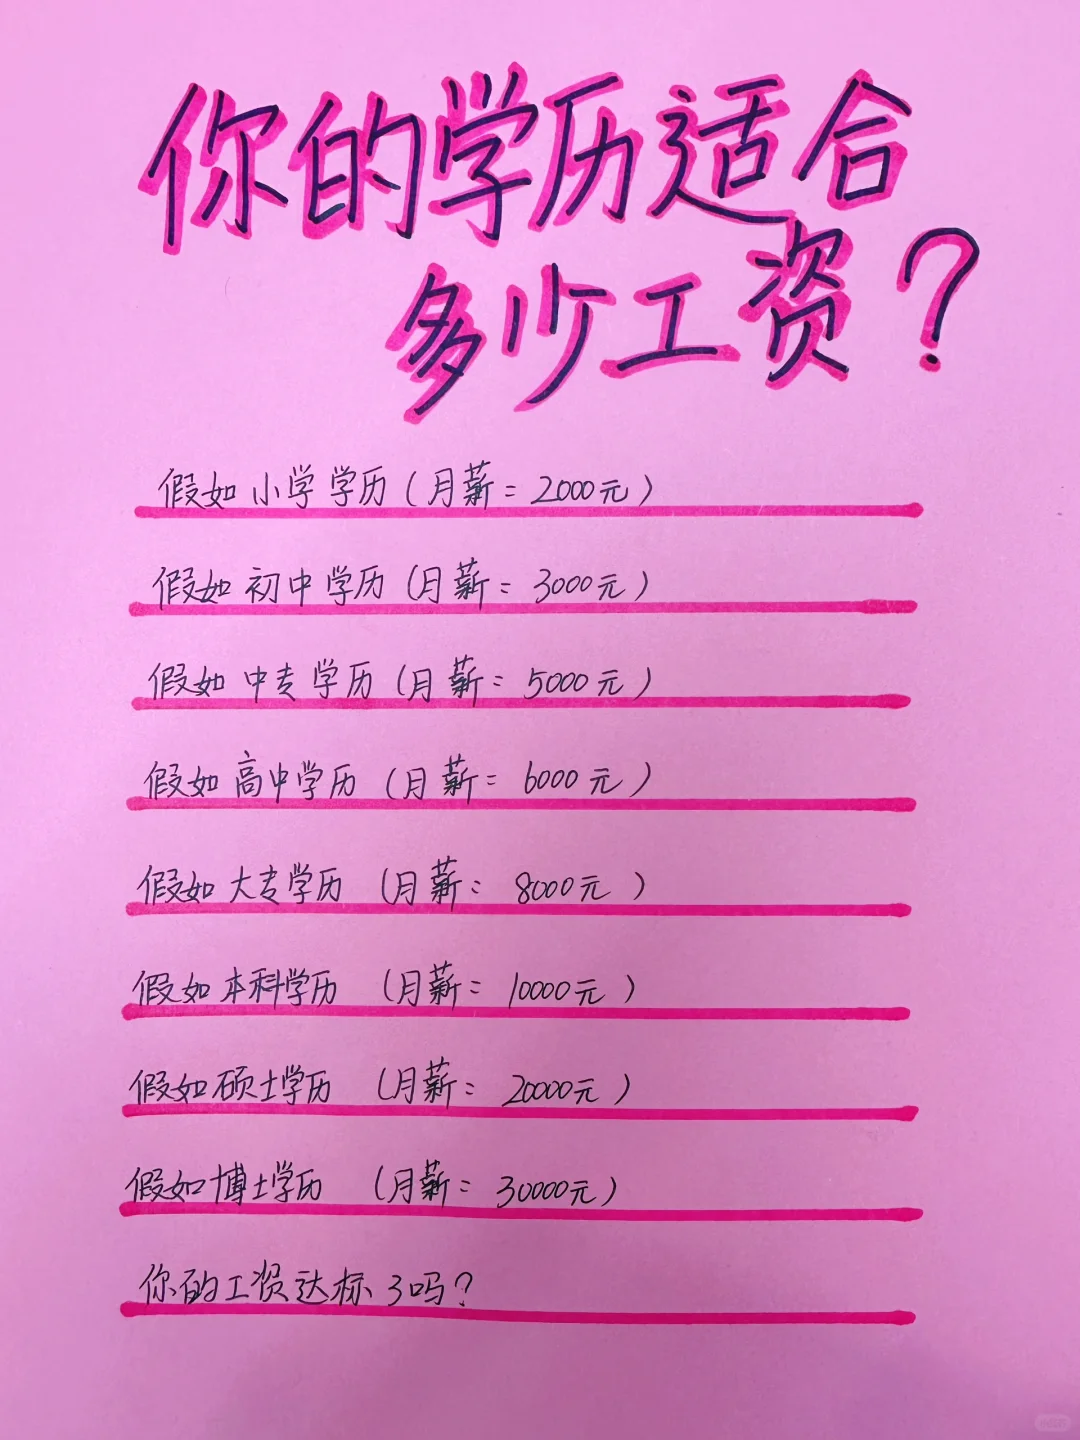 你的学历适合
多少工资?
假如小学学历(月薪=2000元)
假如初中学历(月薪=3000元)
假如中专学历(月薪=5000元)
假如高中学历(月薪=6000元)
假如大专学历(月薪=8000元)
假如本科学历(月薪=10000元)
假如硕士学历(月薪=20000元)
假如博士学历(月薪=30000元)
你的工资达标了吗?